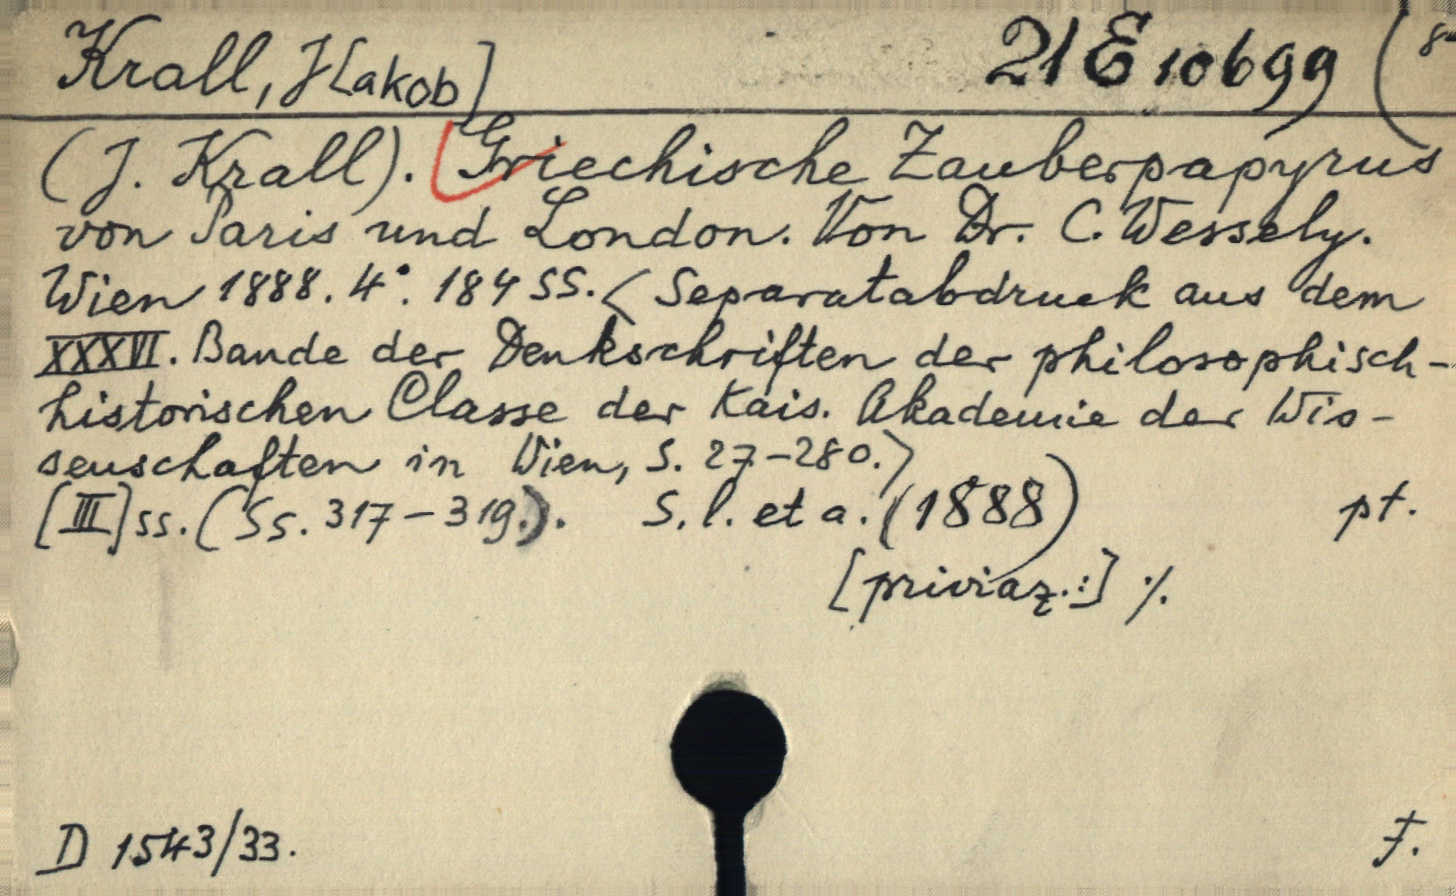 Krall, J[akob] 21 E 10699 (8°
(J. Krall). Griechische Zauberpapyrus
von Paris und London. Von Dr. C. Wessely.
Wien 1888. 4°. 184 SS. < Separatabdruck aus dem
XXXVI. Bande der Denkschriften der philosophisch-
historischen Classe der Kais. Akademie der Wis-
senschaften in Wien, S. 27-280.>
[III] ss. (Ss. 317-319.). S. l. et a. (1888) pt.
[priviaz.:] ./.
D 1543/33. F.